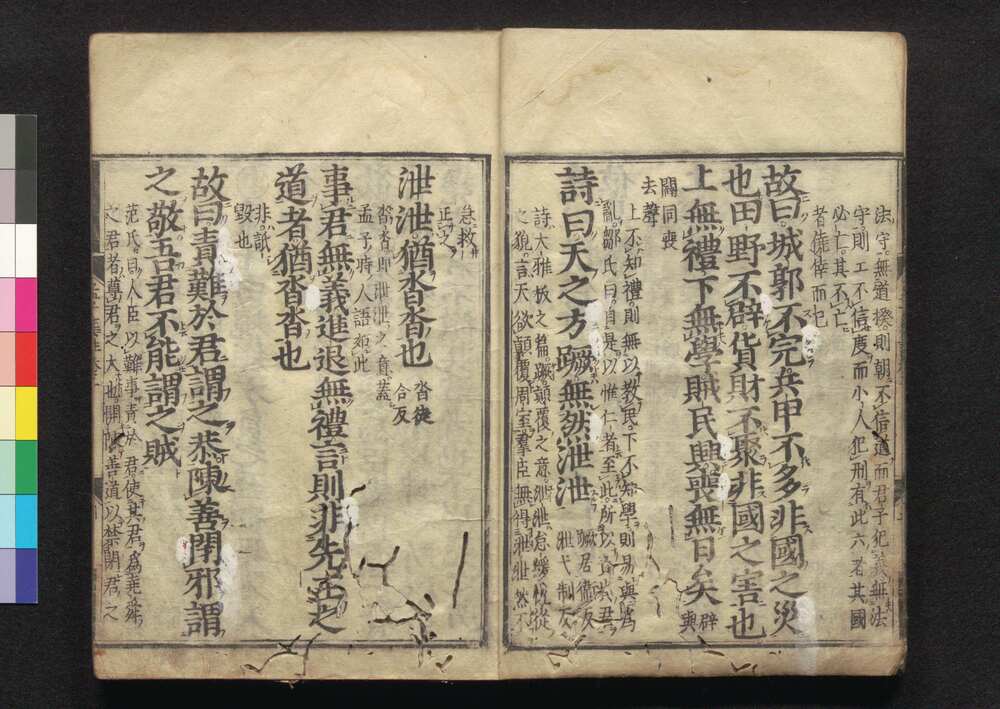 法守無道揆則朝不信道而君子犯義無法
守則工不信度而小人犯刑有此六者其國
必亡其不亡
者僥倖而已
故曰城郭不完兵甲不多非國之災
也田野不辟貨財不聚非國之害也
上無禮下無學賊民興喪無日矣 辟與
闢同喪
去聲
上不知禮則無以教民下不知學則易與為
亂鄒氏曰自是以惟仁者至此所以責其君
詩曰天之方蹶無然泄泄 蹶居衛反
泄弋制反
詩大雅板之篇蹶顛覆之意泄泄怠緩悅從
之貌言天欲顛覆周室羣臣無得泄泄然不
急救
正之
泄泄猶沓沓也 沓徒
合反
沓沓即泄泄之意蓋
孟子時人語如此
事君無義進退無禮言則非先王之
道者猶沓沓也
非詆
毀也
故曰責難於君謂之恭陳善閉邪謂
之敬吾君不能謂之賊
范氏曰人臣以難事責於君使其君為堯舜
之君者尊君之大也開陳善道以禁閉君之